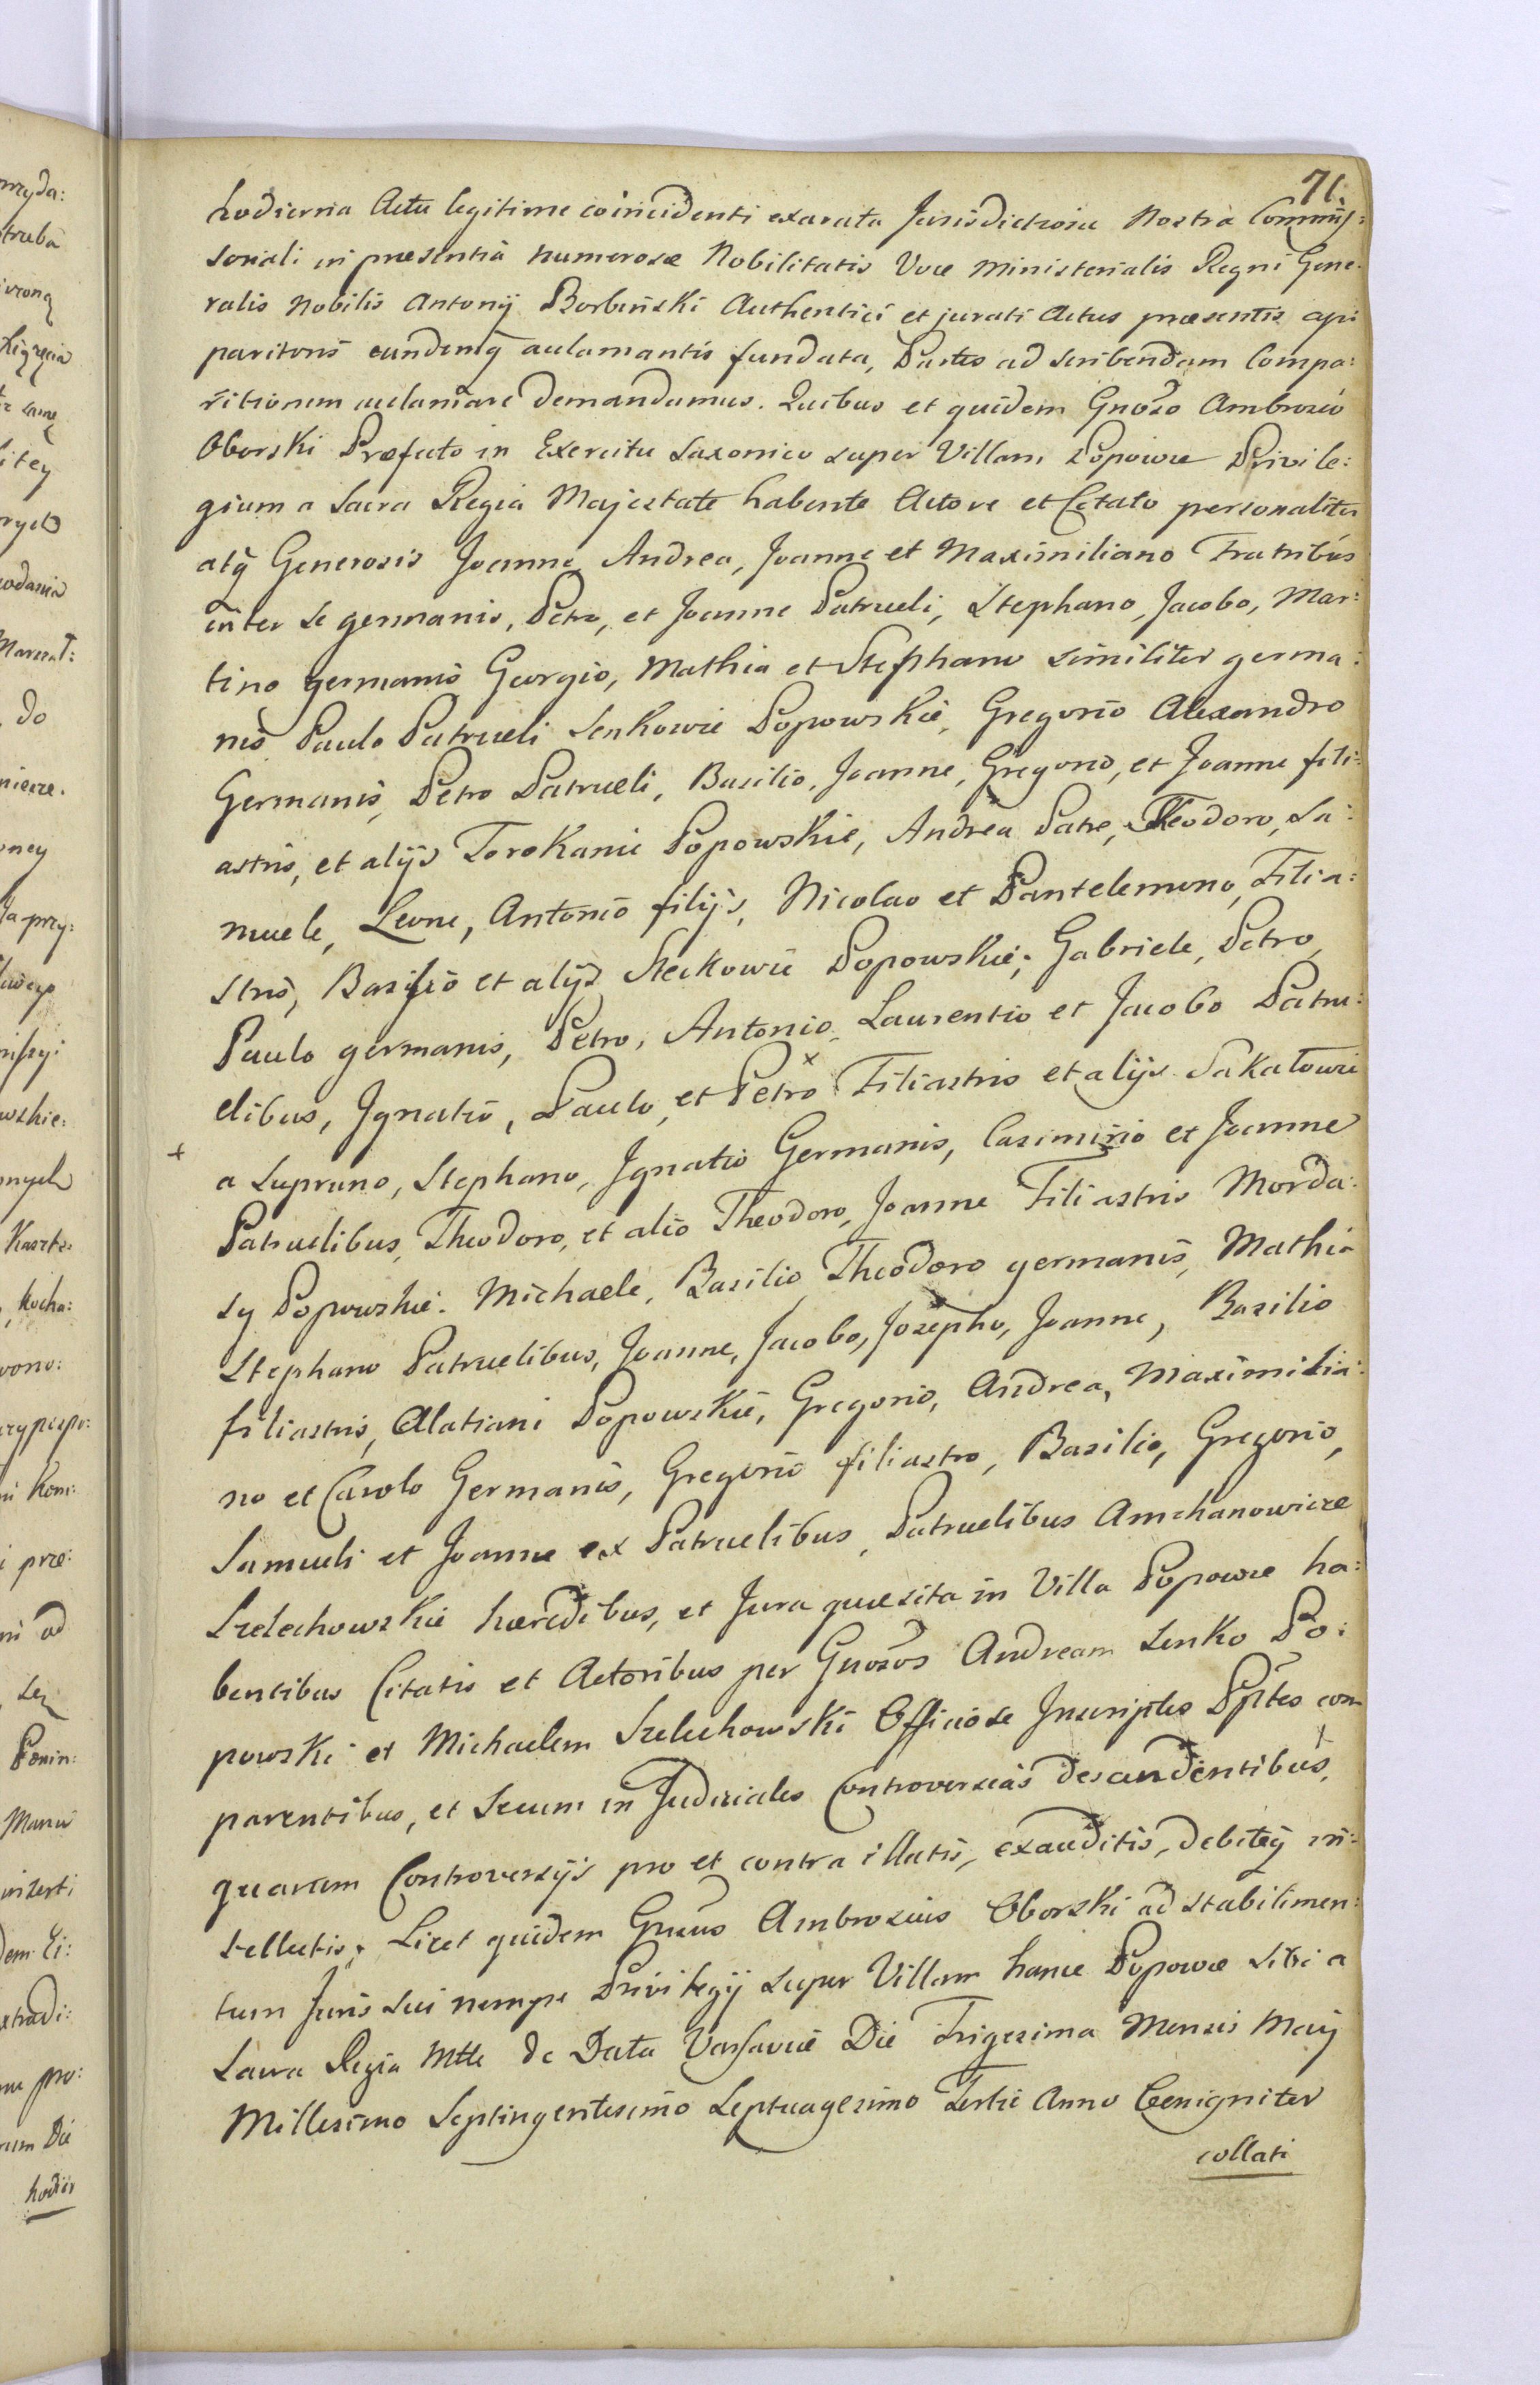 71.
hodierna Actu legitime coincidenti exarata Jurisdictione Nostra Commis:
soriali in præsentiâ numerosæ Nobilitatis Voce Ministerialis Regni Gene:
ralis Nobilis Antonij Borbuński Authentici et jurati Actus præsentis ap:
paritoris eundemq̃ aclamantis fundata, Partes ad scribendam Compa:
ritionem aclamare demandamus. Quibus et quidem Gnoso Ambrosio
Oborski Præfecto in Exercitu Saxonico super Villam Popowce Privile:
gium a Sacra Regia Majestate habente Actore et Citato personaliter
atq̃ Generosis Joanne, Andrea, Joanne et Maximiliano Fratribus
inter se germanis, Petro, et Joanne Patrueli, Stephano, Jacobo, Mar:
tino germanis Georgio, Mathia et Stephano similiter germa:
nis Paulo Patrueli Senkowie Popowskie, Gregorio Alexandro
Germanis, Petro Patrueli, Basilio, Joanne, Gregorio, et Joanne fili:
astris, et alijs Torokanie Popowskie, Andrea Patre, Theodoro, Sa:
muele, Leone, Antonio filijs, Nicolao et Pantelemono, Filia:
stris, Basilio et alijs Steckowie Popowskie; Gabriele, Petro,
Paulo germanis, Petro, Antonio, Laurentio et Jacobo Patru:
elibus, Ignatio, Paulo, et Petro x Filiastris et alijs Sakałowie
+ a Supruno, Stephano, Ignatio Germanis, Casimirio et Joanne
Patruelibus, Theodoro, et alio Theodoro, Joanne Filiastris Morda:
sy Popowskie. Michaele, Basilio, Theodoro germanis, Mathia
Stephano Patruelibus, Joanne, Jacobo, Josepho, Joanne, Basilio
filiastris, Alatiani Popowskie, Gregorio, Andrea, Maximilia:
no et Carolo Germanis, Gregorio filiastro, Basilio, Gregorio,
Samueli et Joanne ex Patruelibus, Patruelibus Amchanowicze
Szelechowskie hæredibus, et Jura quæsita in Villa Popowce ha:
bentibus Citatis et Actoribus per Gnosos Andream Senko Po:
powski et Michaelem Szelechowski Officiose Inscriptos Pñtes com
parentibus, et Secum in Judiciales Controversias descendentibus,
quarum Controversijs pro et contra illatis, exauditis, debiteq̃ in:
tellectis; Licet quidem Gnsus Ambrosius Oborski ad stabilimen:
tum Juris sui nempe Privilegij super Villam hanc Popowce sibi a
Sacra Regia Mtte de Data Varsaviæ Die Trigesima Mensis Maij
Millesimo Septingentesimo Septuagesimo Tertio Anno benigniter
collati